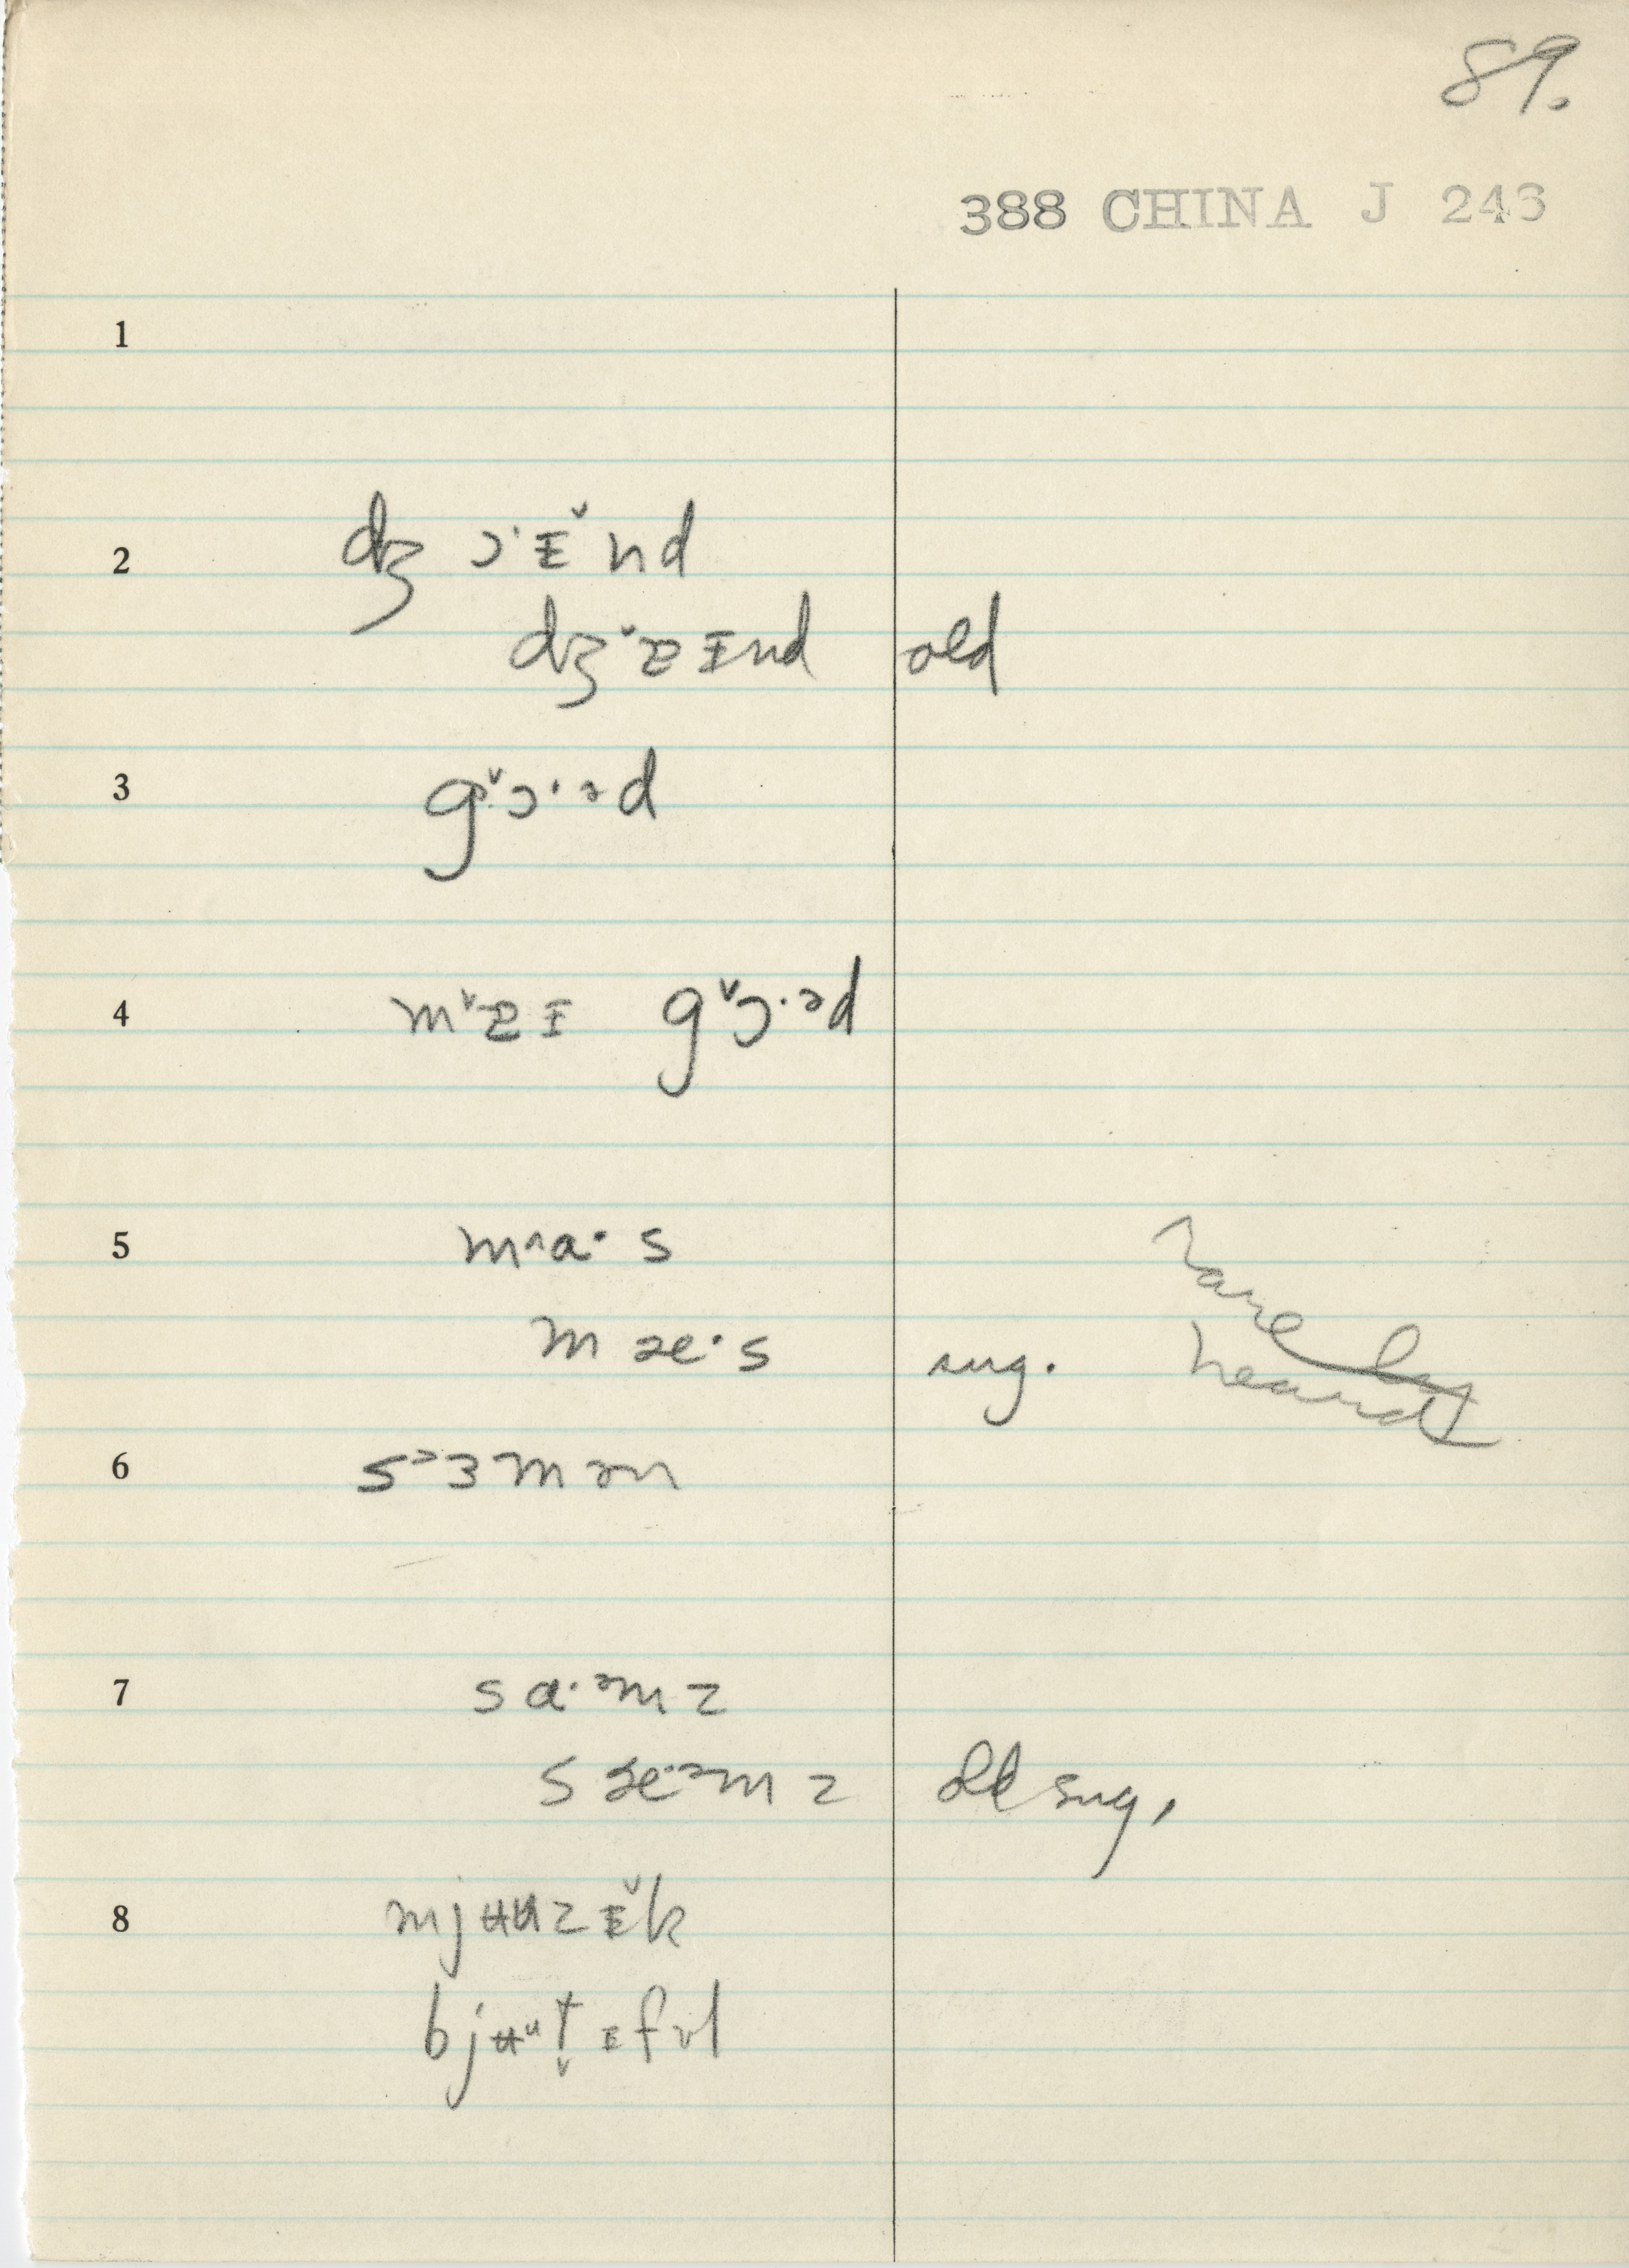 89.
388 CHINA J 243
1
2 dʒ ɔ·ɪ̵̌ nd
dʒ ˇɐ ɪ̵nd old
3 gˇɔ·əd
4 mˇɐɪ̵ gˇɔ·əd
5 m^a·s
m æ·s sug.
heard
6 s˃ɜmən
7 sa·ᵊmz
s æ·ᵊmz old sug,
8 mjʉuzɪ̵̌k
bjʉᵘt̬ɪ̵fʊl